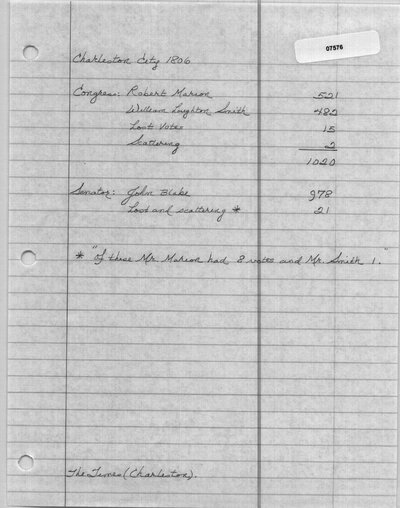 07576
Charleston City 1806
Congress: Robert Marion 521
William Loughton Smith 482
Lost Votes 15
Scattering 2
1020
Senator: John Blake 978
Lost and scattering * 21
* "Of these Mr. Marion had 8 votes and Mr. Smith 1."
The Times (Charleston).